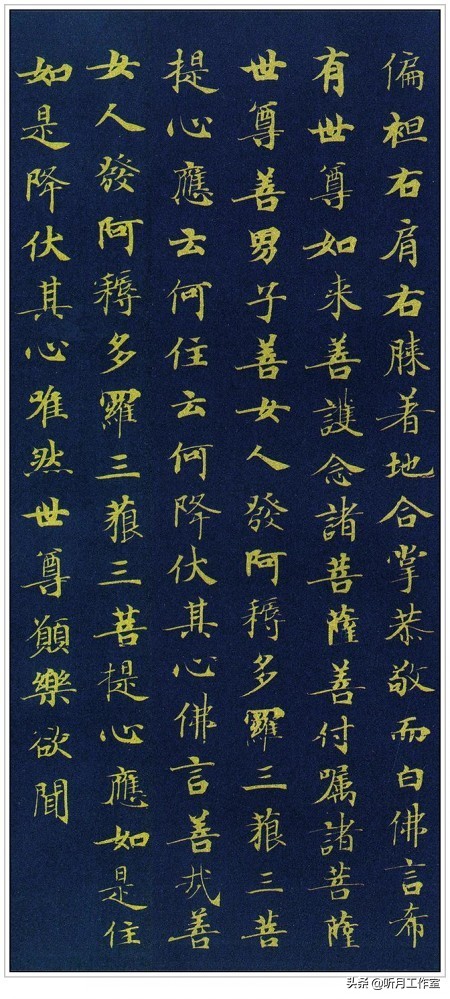 偏袒右肩右膝著地合掌恭敬而白佛言希
有世尊如来善護念諸菩薩善付嘱諸菩薩
世尊善男子善女人發阿耨多羅三藐三菩
提心應云何住云何降伏其心佛言善哉善
女人發阿耨多羅三藐三菩提心應如是住
如是降伏其心唯然世尊願樂欲聞
头条 @听月工作室